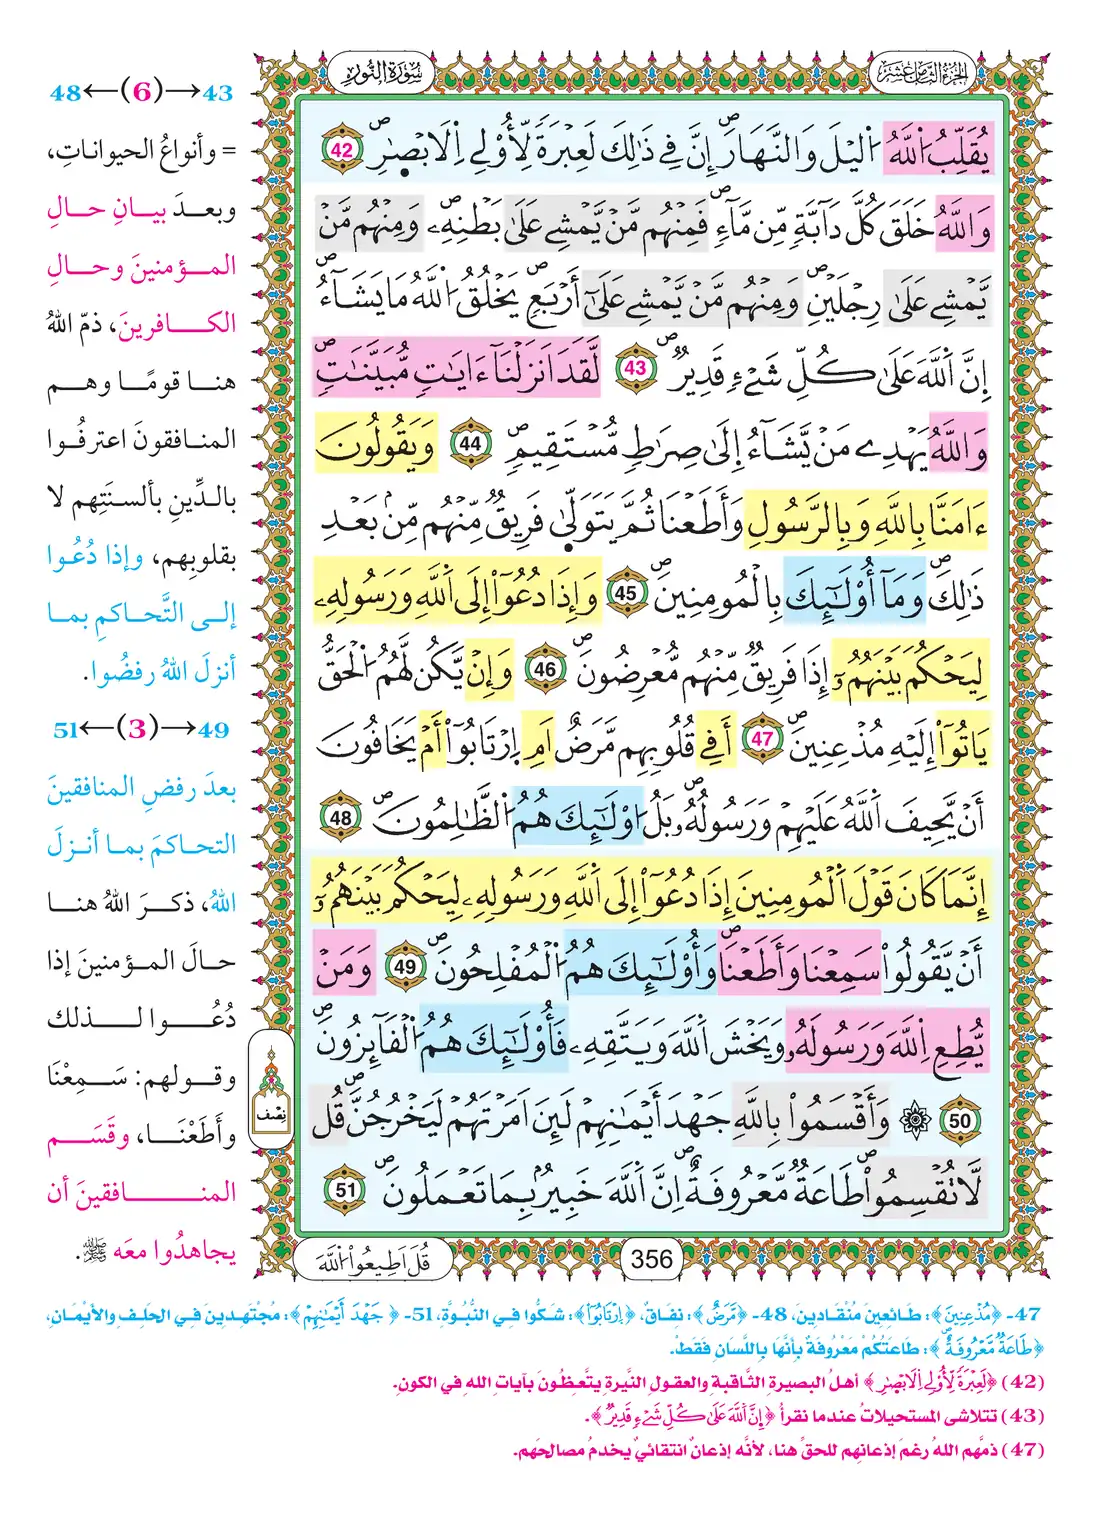 الجزء الثامن عشر
سورة النور
يُقَلِّبُ اُ۬للَّهُ اُ۬ليْلَ وَالنَّهَارَۖ إِنَّ فِے ذَٰلِكَ لَعِبْرَةٗ لِّأُوْلِے اِ۬لَابْصٰ۪رِۖ 42
وَاللَّهُ خَلَقَ كُلَّ دَآبَّةٖ مِّن مَّآءٖۖ فَمِنْهُم مَّنْ يَّمْشِے عَلَىٰ بَطْنِهِۦۖ وَمِنْهُم مَّنْ
يَّمْشِے عَلَىٰ رِجْلَيْنِۖ وَمِنْهُم مَّنْ يَّمْشِے عَلَىٰٓ أَرْبَعٖۖ يَخْلُقُ اُ۬للَّهُ مَا يَشَآءُۖ
إِنَّ اَ۬للَّهَ عَلَىٰ كُلِّ شَےْءٖ قَدِيرٞۖ 43 لَّقَدَ اَنزَلْنَآ ءَايَٰتٖ مُّبَيَّنَٰتٖۖ
وَاللَّهُ يَهْدِے مَنْ يَّشَآءُ اِلَىٰ صِرَٰطٖ مُّسْتَقِيمٖۖ 44 وَيَقُولُونَ
ءَامَنَّا بِاللَّهِ وَبِالرَّسُولِ وَأَطَعْنَا ثُمَّ يَتَوَلّ۪ىٰ فَرِيقٞ مِّنْهُم مِّنۢ بَعْدِ
ذَٰلِكَۖ وَمَآ أُوْلَٰٓئِكَ بِالْمُومِنِينَۖ 45 وَإِذَا دُعُوٓاْ إِلَى اَ۬للَّهِ وَرَسُولِهِۦ
لِيَحْكُمَ بَيْنَهُمُۥٓ إِذَا فَرِيقٞ مِّنْهُم مُّعْرِضُونَۖ 46 وَإِنْ يَّكُن لَّهُمُ اُ۬لْحَقُّ
يَاتُوٓاْ إِلَيْهِ مُذْعِنِينَۖ 47 أَفِے قُلُوبِهِم مَّرَضٌ اَمِ اِ۪رْتَابُوٓاْ أَمْ يَخَافُونَ
أَنْ يَّحِيفَ اَ۬للَّهُ عَلَيْهِمْ وَرَسُولُهُۥۖ بَلُ ا۟وْلَٰٓئِكَ هُمُ اُ۬لظَّٰلِمُونَۖ 48
إِنَّمَا كَانَ قَوْلَ اَ۬لْمُومِنِينَ إِذَا دُعُوٓاْ إِلَى اَ۬للَّهِ وَرَسُولِهِۦ لِيَحْكُمَ بَيْنَهُمُۥٓ
أَنْ يَّقُولُواْ سَمِعْنَا وَأَطَعْنَاۖ وَأُوْلَٰٓئِكَ هُمُ اُ۬لْمُفْلِحُونَۖ 49 وَمَنْ
يُّطِعِ اِ۬للَّهَ وَرَسُولَهُۥ وَيَخْشَ اَ۬للَّهَ وَيَتَّقِهِۦ فَأُوْلَٰٓئِكَ هُمُ اُ۬لْفَآئِزُونَۖ
50 ۞ وَأَقْسَمُواْ بِاللَّهِ جَهْدَ أَيْمَٰنِهِمْ لَئِنَ اَمَرْتَهُمْ لَيَخْرُجُنَّۖ قُل
لَّا تُقْسِمُواْۖ طَاعَةٞ مَّعْرُوفَةٌۖ اِنَّ اَ۬للَّهَ خَبِيرُۢ بِمَا تَعْمَلُونَۖ 51
نصف
356
قُلَ اَطِيعُواْ اُ۬للَّهَ
43→(6)←48
= وأنواعُ الحيواناتِ،
وبعدَ بيانِ حالِ
المؤمنينَ وحالِ
الكافرينَ، ذمّ اللهُ
هنا قومًا وهم
المنافقونَ اعترفُوا
بالدِّينِ بألسنَتِهم لا
بقلوبِهم، وإذا دُعُوا
إلى التَّحاكمِ بما
أنزلَ اللهُ رفضُوا.
49→(3)←51
بعدَ رفضِ المنافقينَ
التحاكمَ بما أنزلَ
اللهُ، ذكرَ اللهُ هنا
حالَ المؤمنينَ إذا
دُعُوا لذلك
وقولهم: سَمِعْنَا
وأَطَعْنَا، وقَسَم
المنافقينَ أن
يجاهدُوا معَه ﷺ.
47- ﴿مُذْعِنِينَ﴾: طَائعينَ مُنْقَادينَ، 48- ﴿مَّرَضٌ﴾: نفَاقٌ، ﴿اِ۪رْتَابُوٓاْ﴾: شَكُّوا في النُّبُوَّةِ، 51- ﴿جَهْدَ أَيْمَٰنِهِمْ﴾: مُجْتَهِدِينَ في الحَلِفِ والأَيْمَانِ،
﴿طَاعَةٞ مَّعْرُوفَةٌ﴾: طَاعَتُكُمْ مَعْرُوفَةٌ بِأنَّهَا بِاللِّسَانِ فَقَطْ.
(42) ﴿لَعِبْرَةٗ لِّأُوْلِے اِ۬لَابْصٰ۪رِ﴾ أهلُ البصيرةِ الثَّاقبةِ والعقولِ النَّيرةِ يتَّعظُون بآياتِ اللهِ في الكونِ.
(43) تتلاشى المستحيلاتُ عندما نقرأُ ﴿إِنَّ اَ۬للَّهَ عَلَىٰ كُلِّ شَےْءٖ قَدِيرٞ﴾.
(47) ذمَّهم اللهُ رغمَ إذعانِهم للحقِّ هنا، لأنَّه إذعانٌ انتقائيٌّ يخدمُ مصالحَهم.